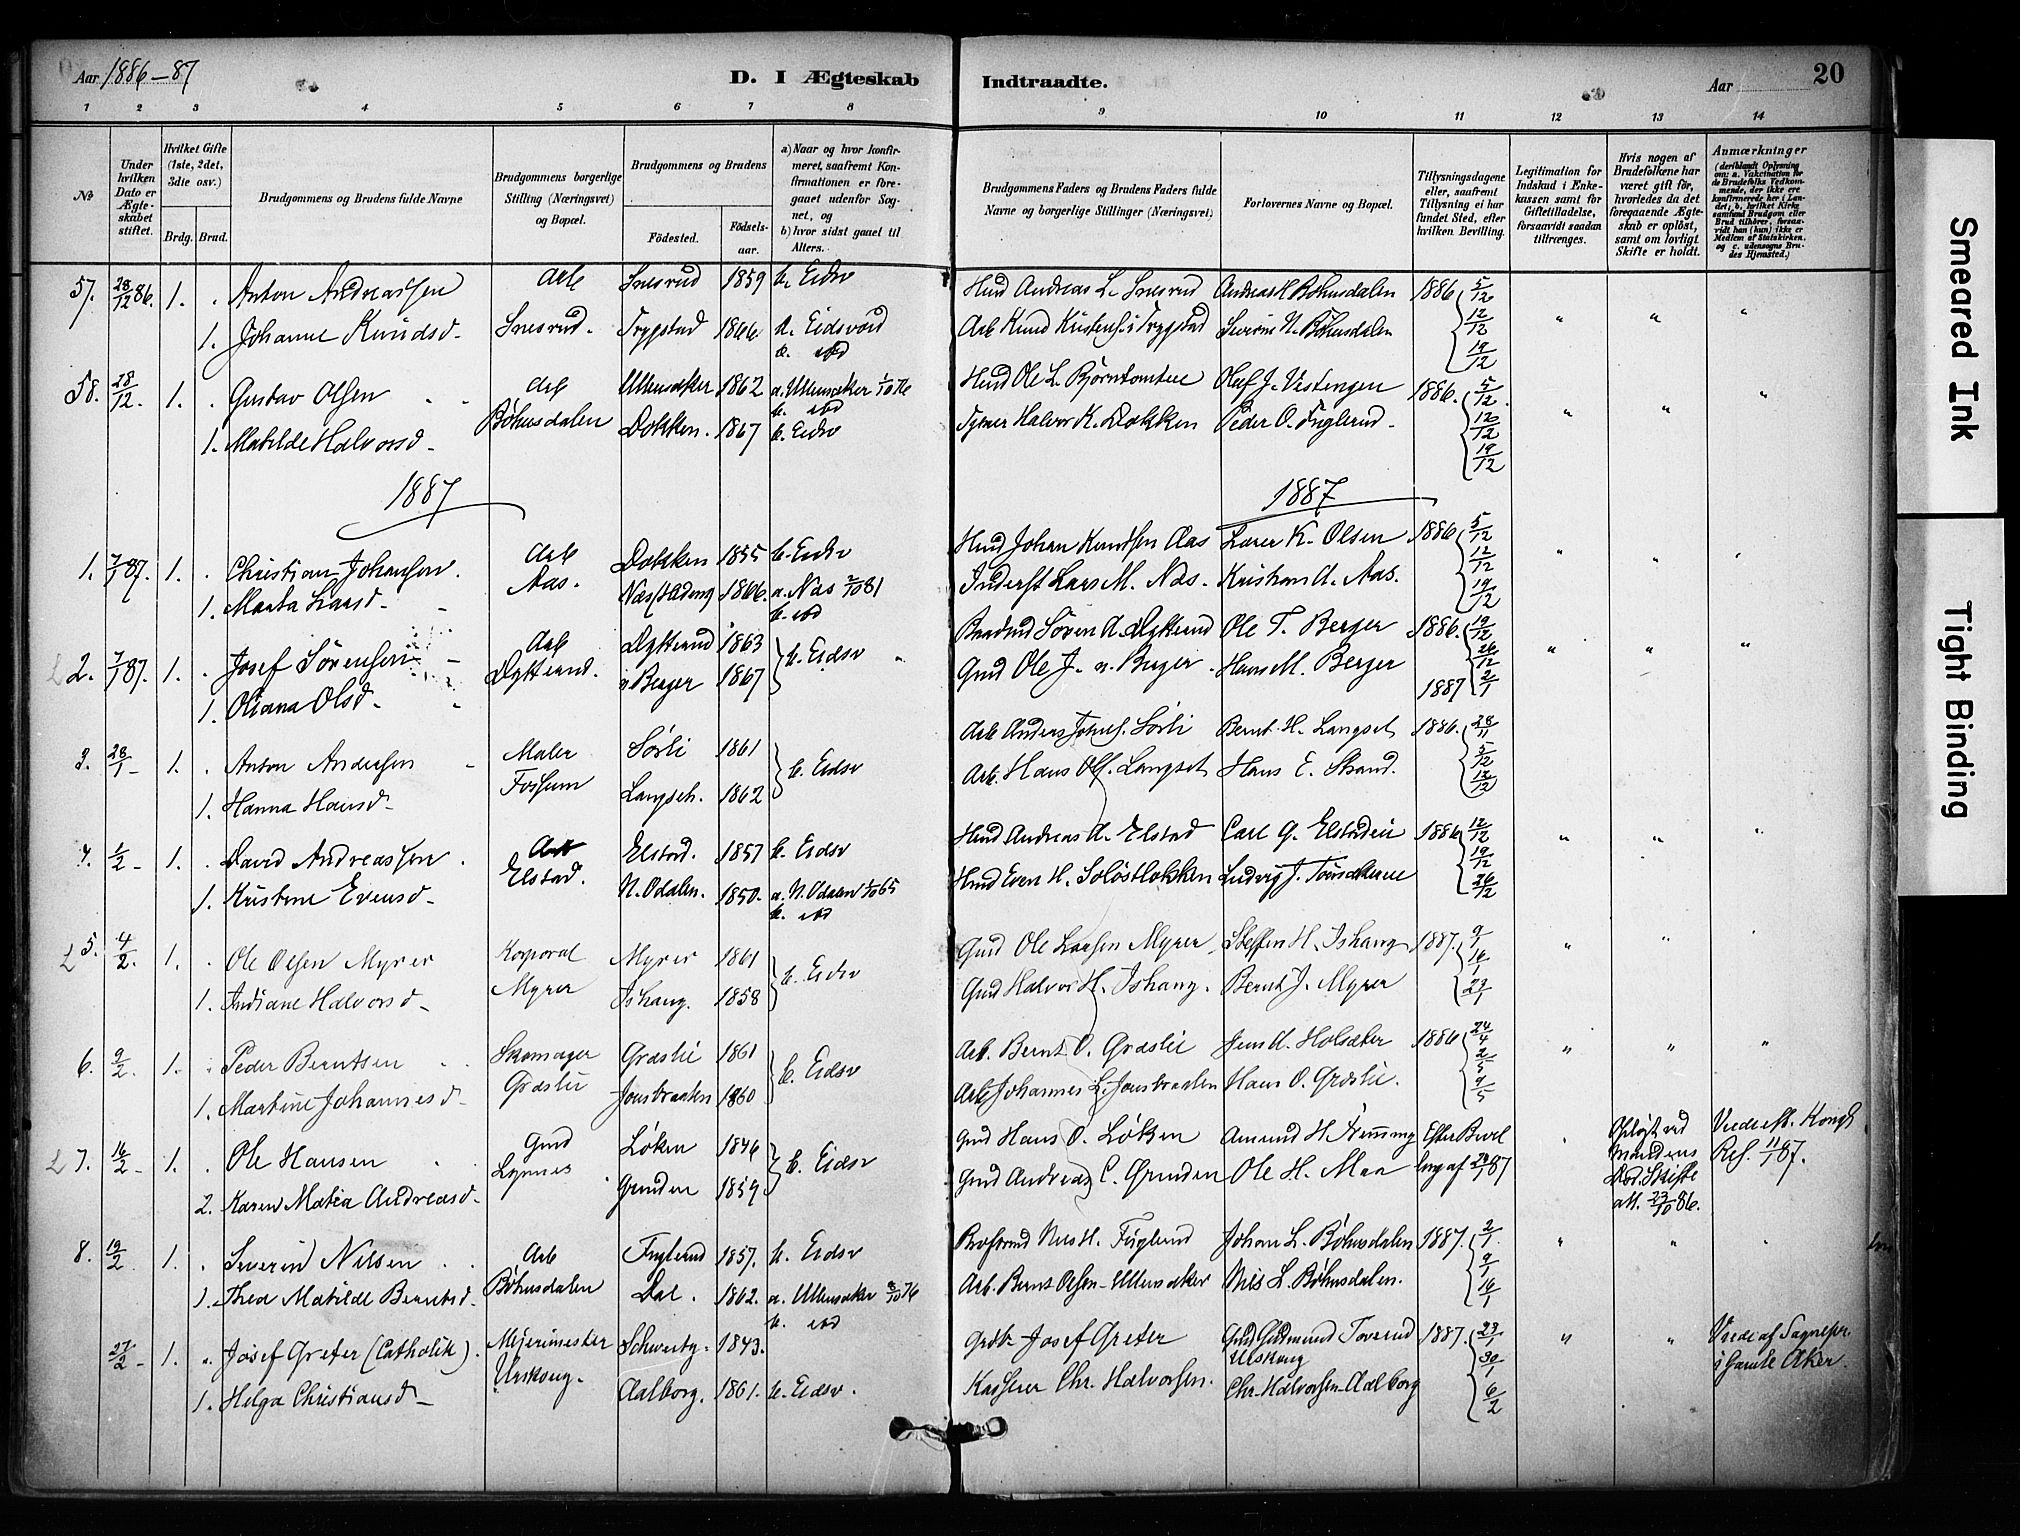 Aar 1886-87
D. I Ægteskab Indtraadte.
Aar 20
1 2 3 4 5 6 7 8 9 10 11 12 13 14
No
Under hvilken Dato er Ægteskabet stiftet.
Hvilket Gifte (1ste, 2det, 3die osv.)
Brdg. Brud.
Brudgommens og Brudens fulde Navne
Brudgommens borgerlige Stilling (Næringsvei) og Bopæl.
Brudgommens og Brudens
Fødested.
Fødselsaar.
a) Naar og hvor konfirmeret, saafremt Konfirmationen er foregaaet udenfor Sognet, og
b) hvor sidst gaaet til Alters.
Brudgommens Faders og Brudens Faders fulde Navne og borgerlige Stillinger (Næringsvei)
Forlovernes Navne og Bopæl.
Tillysningsdagene eller, saafremt Tillysning ei har fundet Sted, efter hvilken Bevilling.
Legitimation for Indskud i Enkekassen samt for Giftetilladelse, forsaavidt saadan tiltrænges.
Hvis nogen af Brudefolkene har været gift før, hvorledes da det foregaaende Ægteskab er opløst, samt om lovligt Skifte er holdt.
Anmærkninger (deriblandt Oplysning om: a. Vakcination for de Brudefolks Vedkommende, der ikke ere konfirmerede her i Landet, b. hvilket Kirkesamfund Brudgom eller Brud tilhører, forsaavidt han (hun) ikke er Medlem af Statskirken, og c. udensogns Brudes Hjemsted.)
57. 28/12 86. 1. Anton Andreassen Arb Snesrud 1859 b. Eidsv Husd Andreas L. Snesrud Andreas H Bøhnsdalen 1886 5/12
1. Johanne Knudsd. Snesrud. Trygstad 1866. a. Eidsvold Arb Knud Kristens. i Trygstad Severin N. Bøhnsdalen 12/12
b. ibd 19/12
58. 28/12. 1. Gustav Olsen Arb Ullensaker 1862 a. Ullensaker 1/10 76 Husd Ole L. Bjørntomten Oluf J. Vestengen 1886. 5/12
b. ibd
1. Matilde Halvorsd. Bøhnsdalen Dokken. 1867 b. Eidsv Halvor K. Dokken Peder O. Fuglerud. 12/12
19/12
1887 1887
1. 7/1 87. 1. Christian Johansen. Arb Dokken 1855 b. Eidsv Husd Johan Knutsen Aas Lærer K. Olsen 1886 5/12
1. Marta Larsd. Aas. 1866. a. Næs 2/10 81 Inderst Lars M. Næs. Kristian A. Aas. 12/12
b. ibd 19/12
2. 7/1 87. 1. Josef Sørensen Arb Dytterud 1863 b. Eidsv Søren A. Dytterud Ole T. Berger 1886. 19/12
Dytterud. 26/12
1. Oliana Olsd. Berger 1867 Gmd Ole J. Berger. Hans M. Berger 1887 2/1
3. 28/1 1. Anton Andersen Maler Sørli 1861 b. Eidsv Arb Anders Johns. Sørli Bernt H. Langset 1886. 28/11
Fossum 5/12
1. Hanna Hansd. Langseth. 1862 Arb. Hans Ols. Langset Hans E. Strand. 12/12
4. 1/2 1. David Andreassen. Arb Elstad. 1857 b. Eidsv Husd Andreas A. Elstad Carl G. Elstadeie 1886 12/12
Elstad. 19/12
1. Kristine Evensd. N. Odalen. 1850. a. N. Odalen 1/10 65 Husd Even H. Ludvig J. 26/12
b. ibd
5. 4/2. 1. Ole Olsen Myrer Korporal Myrer 1861 b. Eidsv Gmd Ole Larsen Myrer Steffen H. Ishang 1887. 9/1
Myrer 16/1
1. Indiane Halvorsd. Ishang. 1858 Gmd Halvor H. Ishang. Bernt J. Myrer 23/1
6. 9/2. 1. Peder Berntsen Skomager Græslie 1861 b. Eidsv Arb. Bernt O. Græslie Jens A. Holsæter 1886 24/4
Græslie 2/5
1. Martine Johannesd. Jonsbraaten 1860 Arb Johannes L. Jonsbraaten Hans O. Græslie. 9/5
7. 16/2 1. Ole Hansen Gmd Løken 1846 b. Eidsv Gmd Hans O. Løken Amund H. Efter Bevil Opløst ved Viede eft. Kongl
Lynnes Mandens Res. 11/1 87.
2. Karen Matea Andreasd. Grinden 1859 Gmd Andreas C. Grinden Ole H. Maa ling af 28/1 87 Død. Skifte
att. 23/10 86.
8. 19/2 1. Severin Nilsen Arb Fuglerud 1857. b. Eidsv Nils H. Fuglerud Johan L. Bøhnsdalen 1887. 2/1
9/1
1. Thea Matilde Berntsd. Bøhnsdalen Dal. 1862. a. Ullensaker 8/10 76 Arb. Bernt Olsen-Ullensaker Nils L. Bøhnsdalen. 16/1
b. ibd
27/2 1. Josef Greter (Catholik). Meierimester 1843. Josef Greter Gmd Gudmund Toverud 1887. 23/1 Viede af Sognepr.
Urskoug. Urskoug 30/1 i Gamle Aker.
1. Helga Christiansd. Aalborg. 1861. b. Eidsv. Kasserer Chr. Halvorsen. Chr. Halvorsen-Aalborg 6/2
Smeared Ink
Tight Binding